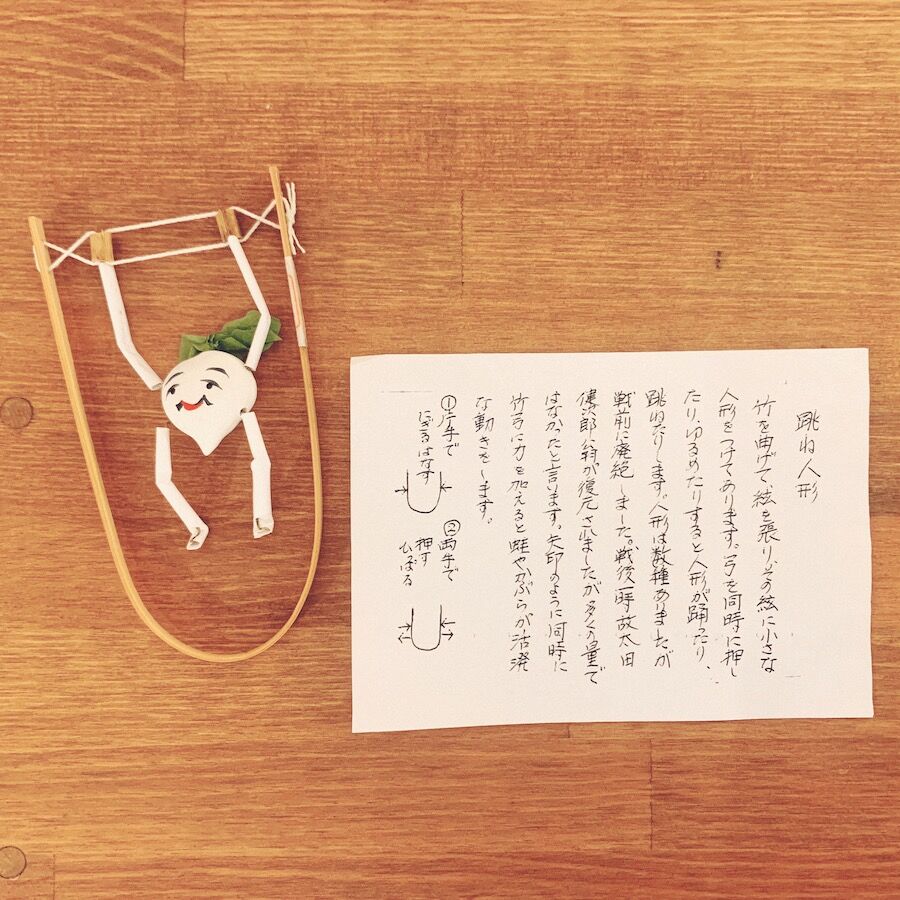 跳ね人形
竹を曲げて、絃を張り、その絃に小さな
人形をつけてあります。弓を同時に押し
たり、ゆるめたりすると人形が踊ったり、
跳ねたりします。人形は数種ありましたが
戦前に廃絶しました。戦後一時故太田
健次郎翁が復元されましたが多くの量で
はなかったと言います。矢印のように同時に
竹弓に力を加えると蛙やかぶらが活溌
な動きをします。
①片手で
にぎるはなす
②両手で
押す
ひっぱる